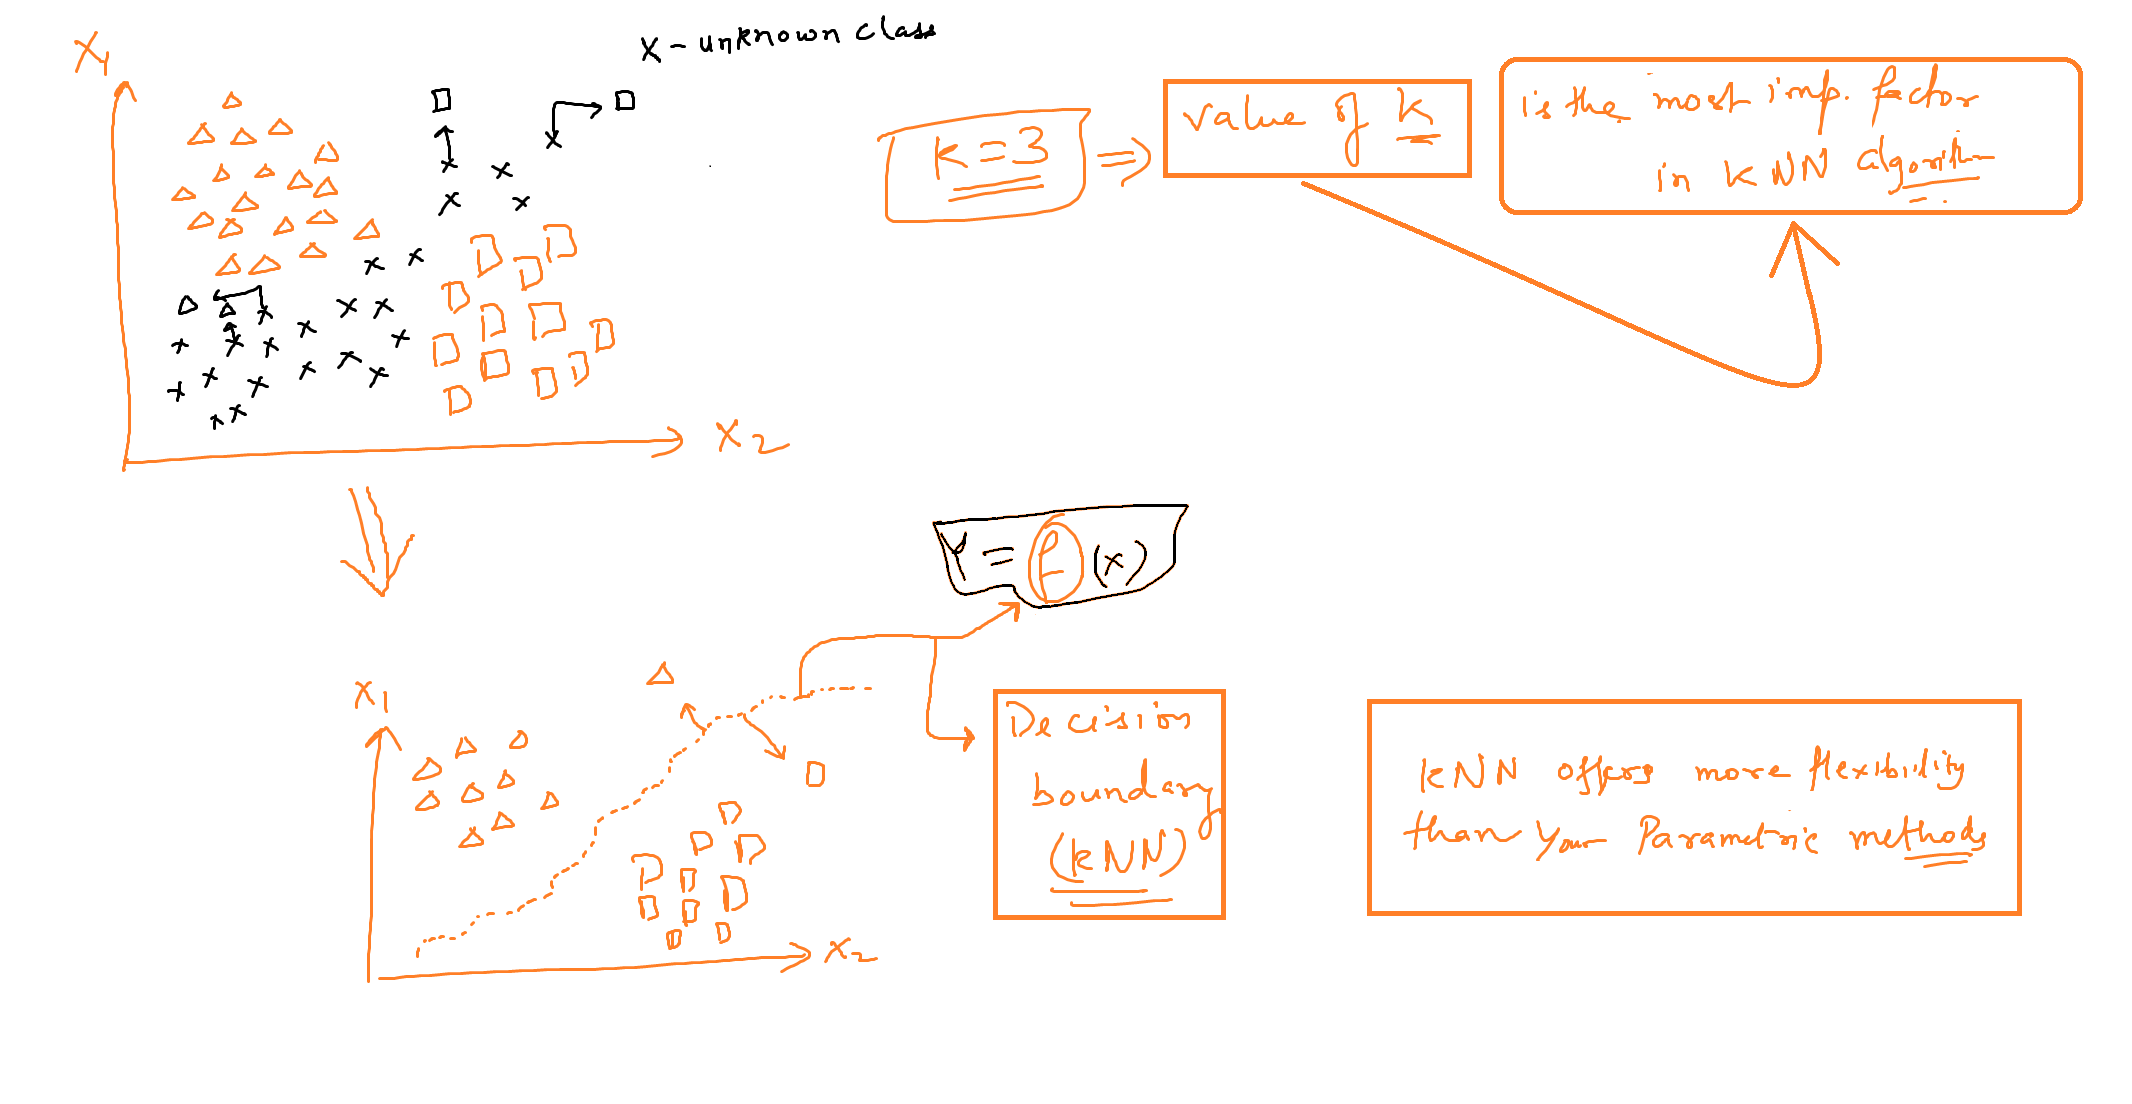 X1
X - unknown class
k = 3
value of k
is the most imp. factor
in KNN algorithm
X2
Y = f (x)
X1
Decision
boundary
(kNN)
X2
kNN offers more flexibility
than your Parametric methods